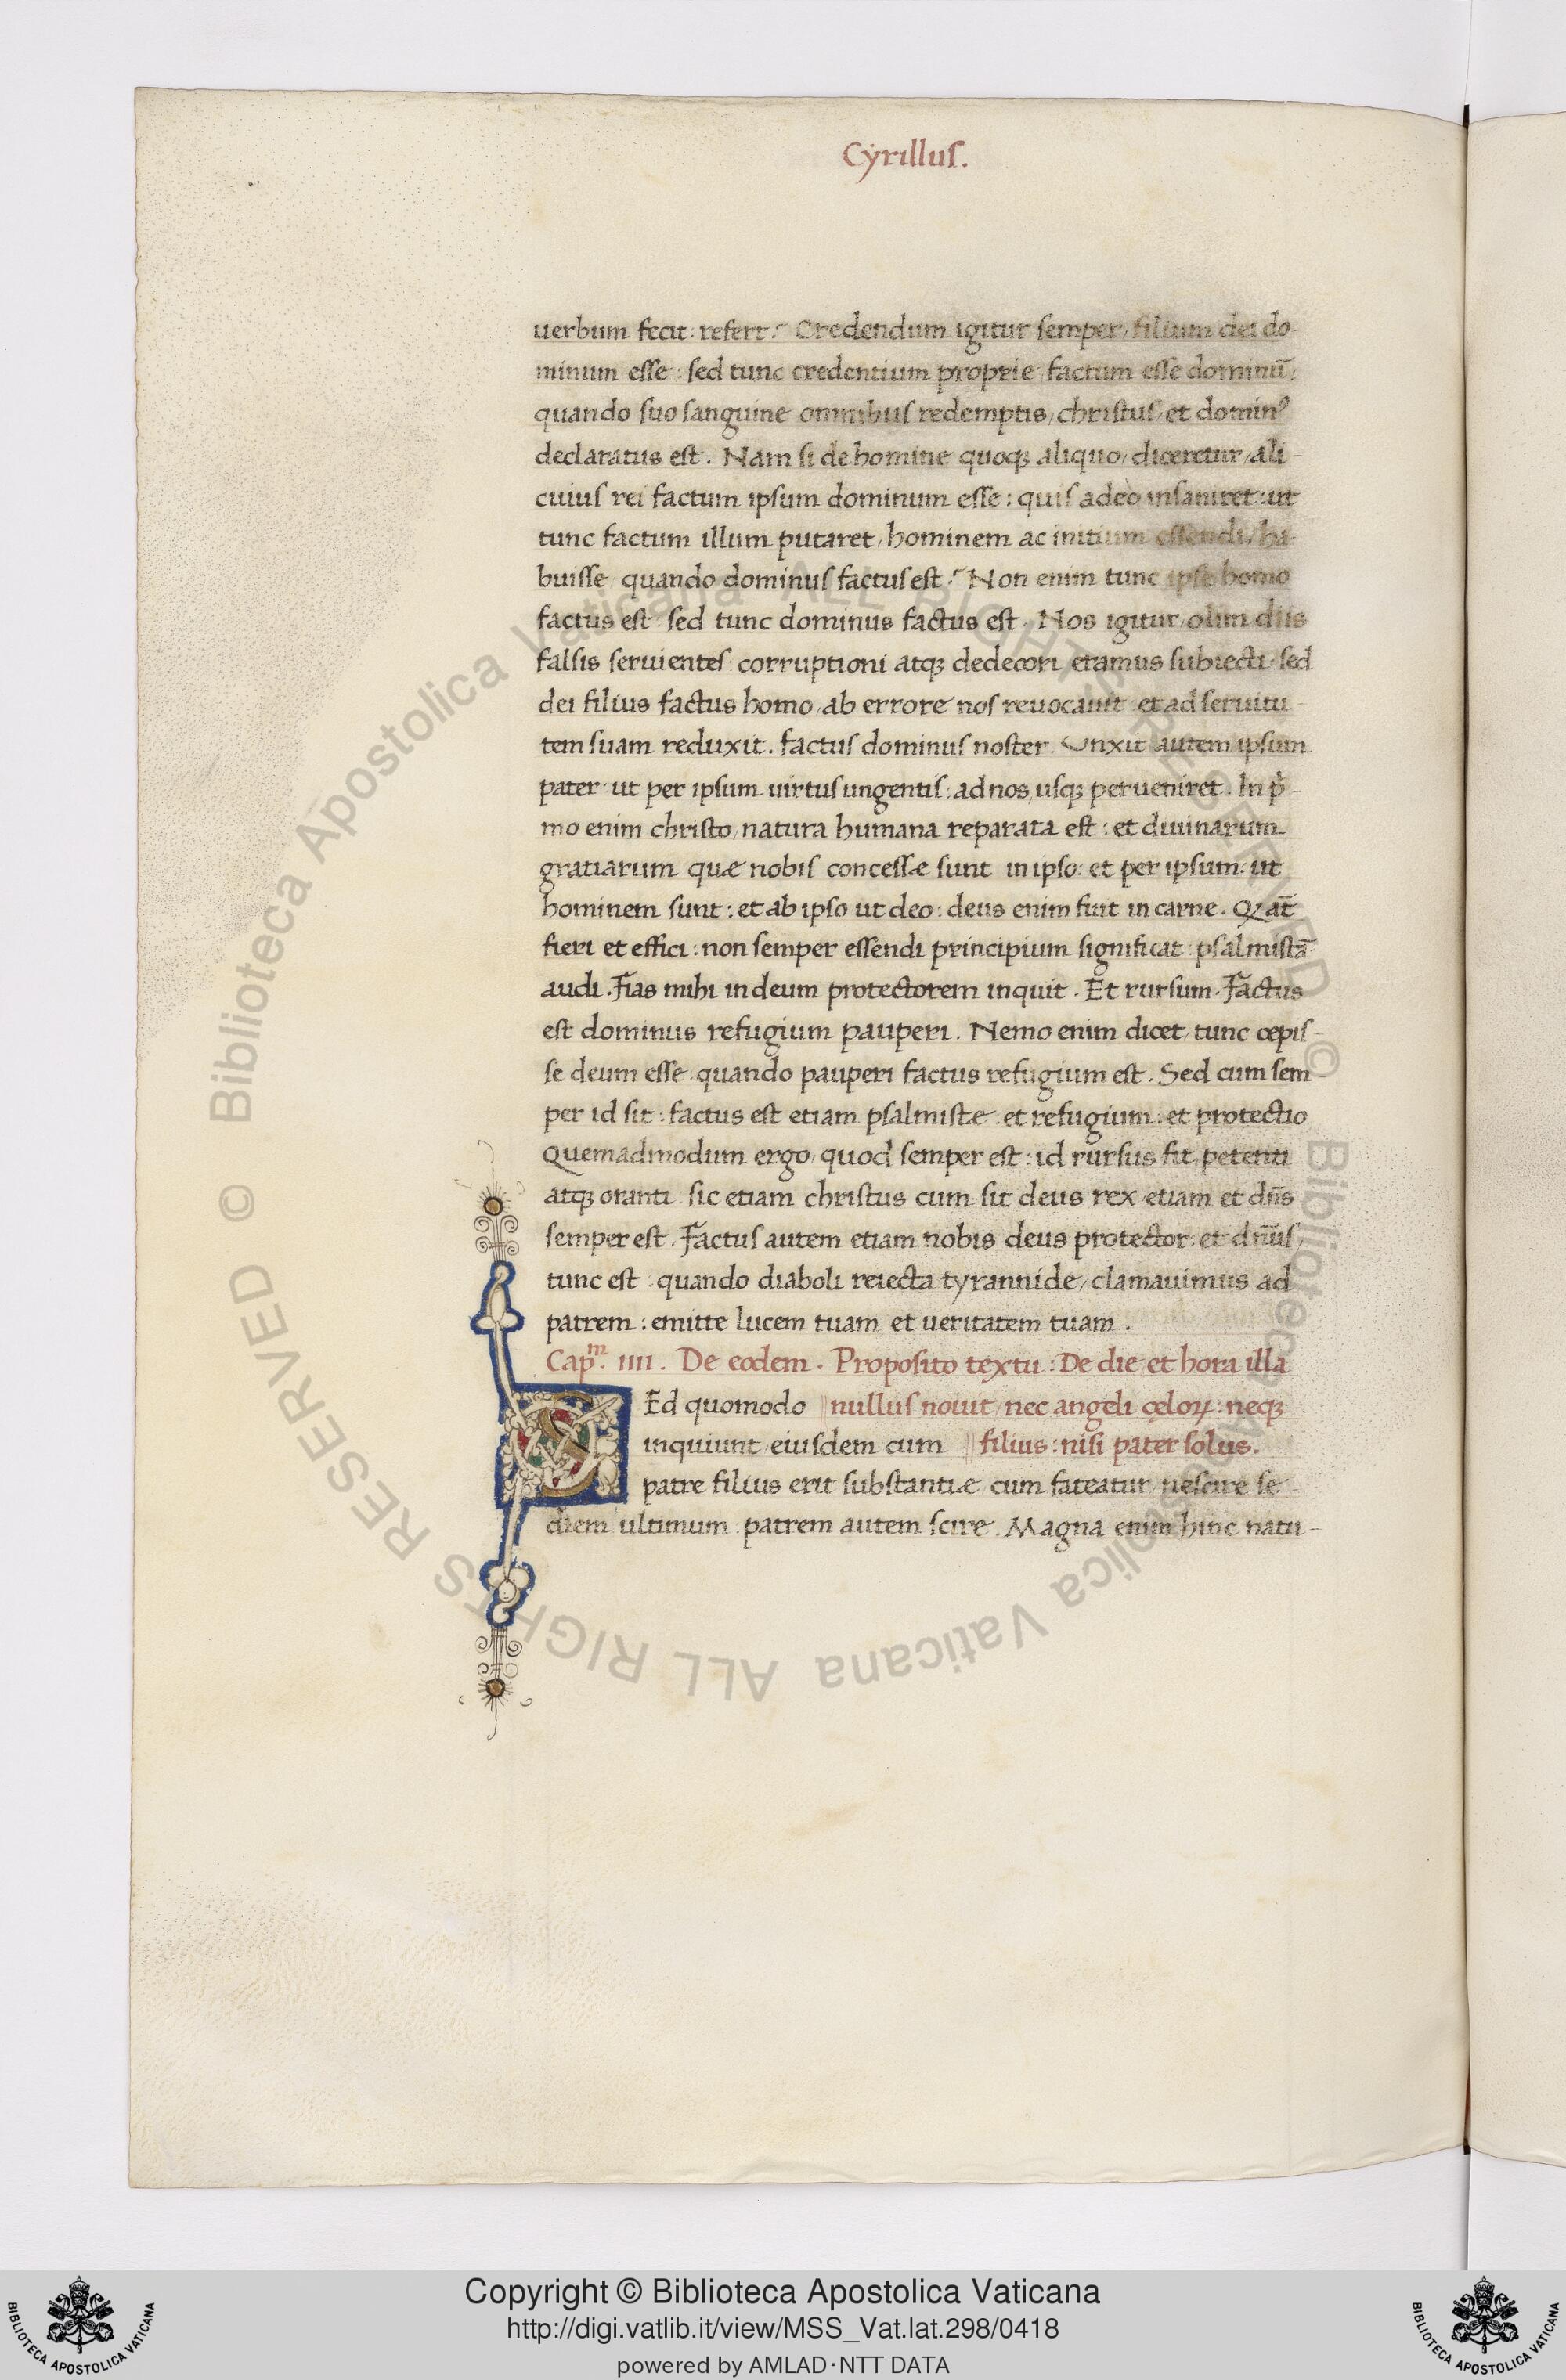 Cÿrillus.
uerbum fecit: refert? Credendum igitur semper, filium dei do-
minum esse: sed tunc credentium proprie factum esse dominū:
quando suo sanguine omnibus redemptis, christus, et dominꝰ
declaratus est. Nam si de homine quoqꝫ aliquo, diceretur, ali-
cuius rei factum ipsum dominum esse: quis adeò insaniret: ut
tunc factum illum putaret, hominem ac initium essendi, ha-
buisse quando dominus factus est? Non enim tunc ipse homo
factus est: sed tunc dominus factus est. Nos igitur, olim diis
falsis seruientes: corruptioni atqꝫ dedecori eramus subiecti: sed
dei filius factus homo, ab errore nos reuocauit: et ad seruitu-
tem suam reduxit. factus dominus noster. Unxit autem ipsum
pater: ut per ipsum uirtus ungentis: ad nos, usqꝫ perueniret. In pⁱ-
mo enim christo, natura humana reparata est: et diuinarum
gratiarum quæ nobis concessæ sunt in ipso: et per ipsum: ut
hominem sunt: et ab ipso ut deo: deus enim fuit in carne. Qꝫ aūt
fieri et effici: non semper essendi principium significat: psalmistā
audi. Fias mihi in deum protectorem inquit. Et rursum. Factus
est dominus refugium pauperi. Nemo enim dicet, tunc cepis-
se deum esse: quando pauperi factus refugium est. Sed cum sem
per id sit: factus est etiam psalmistæ: et refugium: et protectio
Quemadmodum ergo, quod semper est: id rursus fit, petenti
atqꝫ oranti: sic etiam christus cum sit deus rex etiam et dn̄s
semper est. Factus autem etiam nobis deus protector: et dn̄us,
tunc est: quando diaboli reiecta tyrannide, clamauimus ad
patrem: emitte lucem tuam et ueritatem tuam.
Capᵐ. IIII. De eodem. Proposito textu: De die et hora illa
SEd quomodo nullus nouit, nec angeli cęloꝝ: neqꝫ
inquiunt, eiusdem cum filius: nisi pater solus.
patre filius erit substantiæ, cum fateatur nescire se
diem ultimum: patrem autem scire. Magna enim hinc natu-
© Biblioteca Apostolica Vaticana ALL RIGHTS RESERVED © Biblioteca Apostolica Vaticana ALL RIGHTS RESERVED
Copyright © Biblioteca Apostolica Vaticana
http://digi.vatlib.it/view/MSS_Vat.lat.298/0418
powered by AMLAD·NTT DATA
BIBLIOTECA APOSTOLICA VATICANA
BIBLIOTECA APOSTOLICA VATICANA